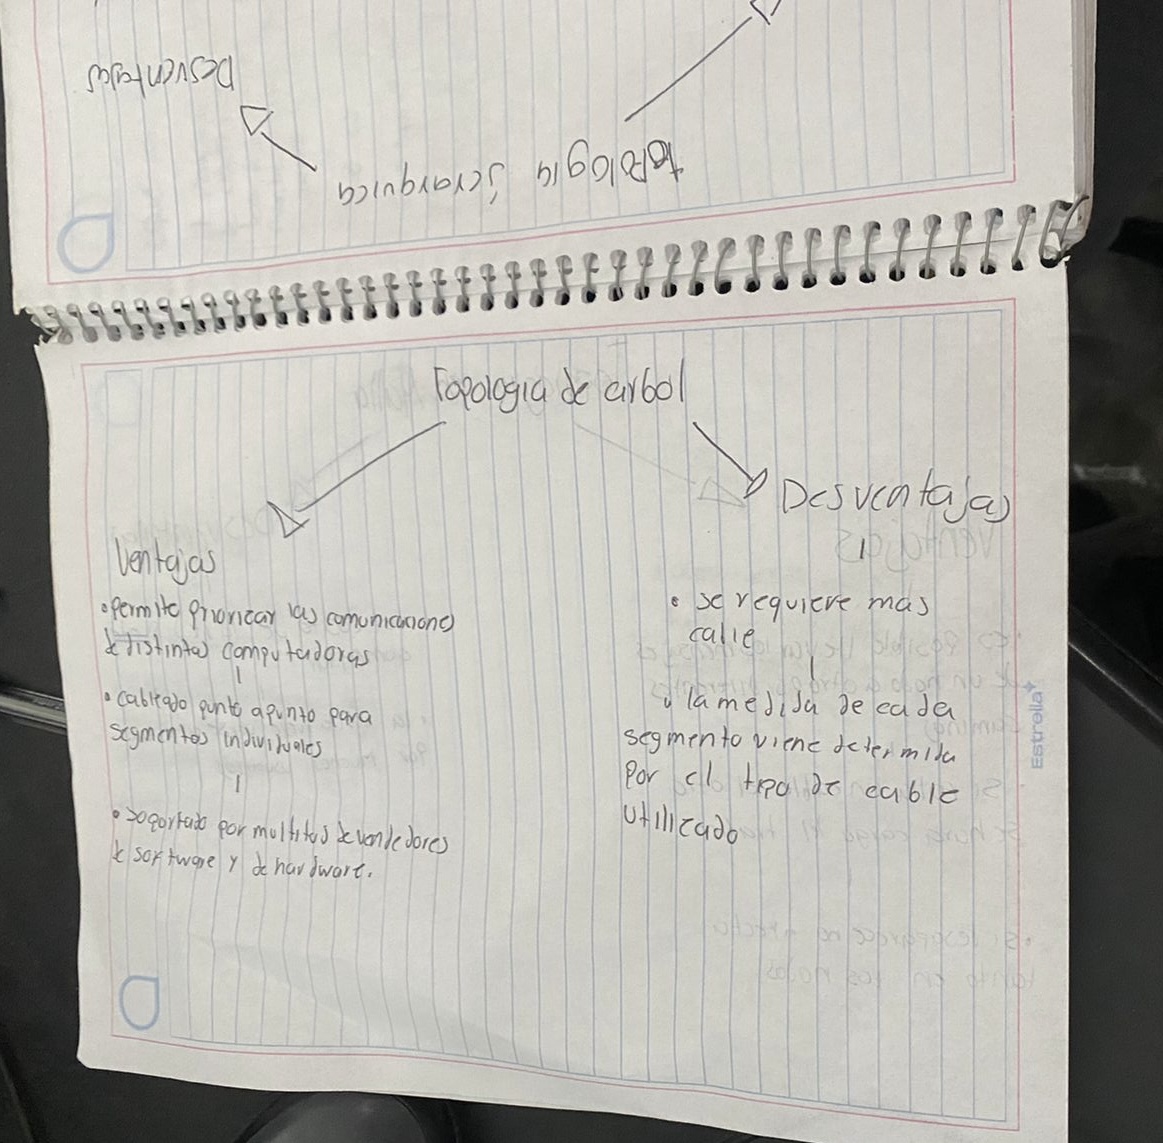 Desventajas
topologia jerarquica
Topologia de arbol
Ventajas
•permite priorizar las comunicaciones
de distintas computadoras
• cableado punto a punto para
segmentos individuales
• soportado por multitud de vendedores
de software y de hardware.
Desventajas
• se requiere mas
calie
• la medida de cada
segmento viene determida
por el tipo de cable
utilizado
Estrella